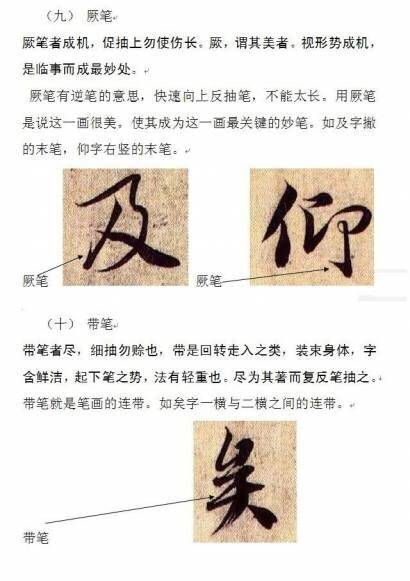 （九） 厥笔
厥笔者成机，促抽上勿使伤长。厥，谓其美者。视形势成机，
是临事而成最妙处。
厥笔有逆笔的意思，快速向上反抽笔，不能太长。用厥笔
是说这一画很美。使其成为这一画最关键的妙笔。如及字撇
的末笔，仰字右竖的末笔。
及
仰
厥笔
厥笔
（十） 带笔
带笔者尽，细抽勿赊也，带是回转走入之类，装束身体，字
含鲜洁，起下笔之势，法有轻重也。尽为其著而复反笔抽之。
带笔就是笔画的连带。如矣字一横与二横之间的连带。
矣
带笔